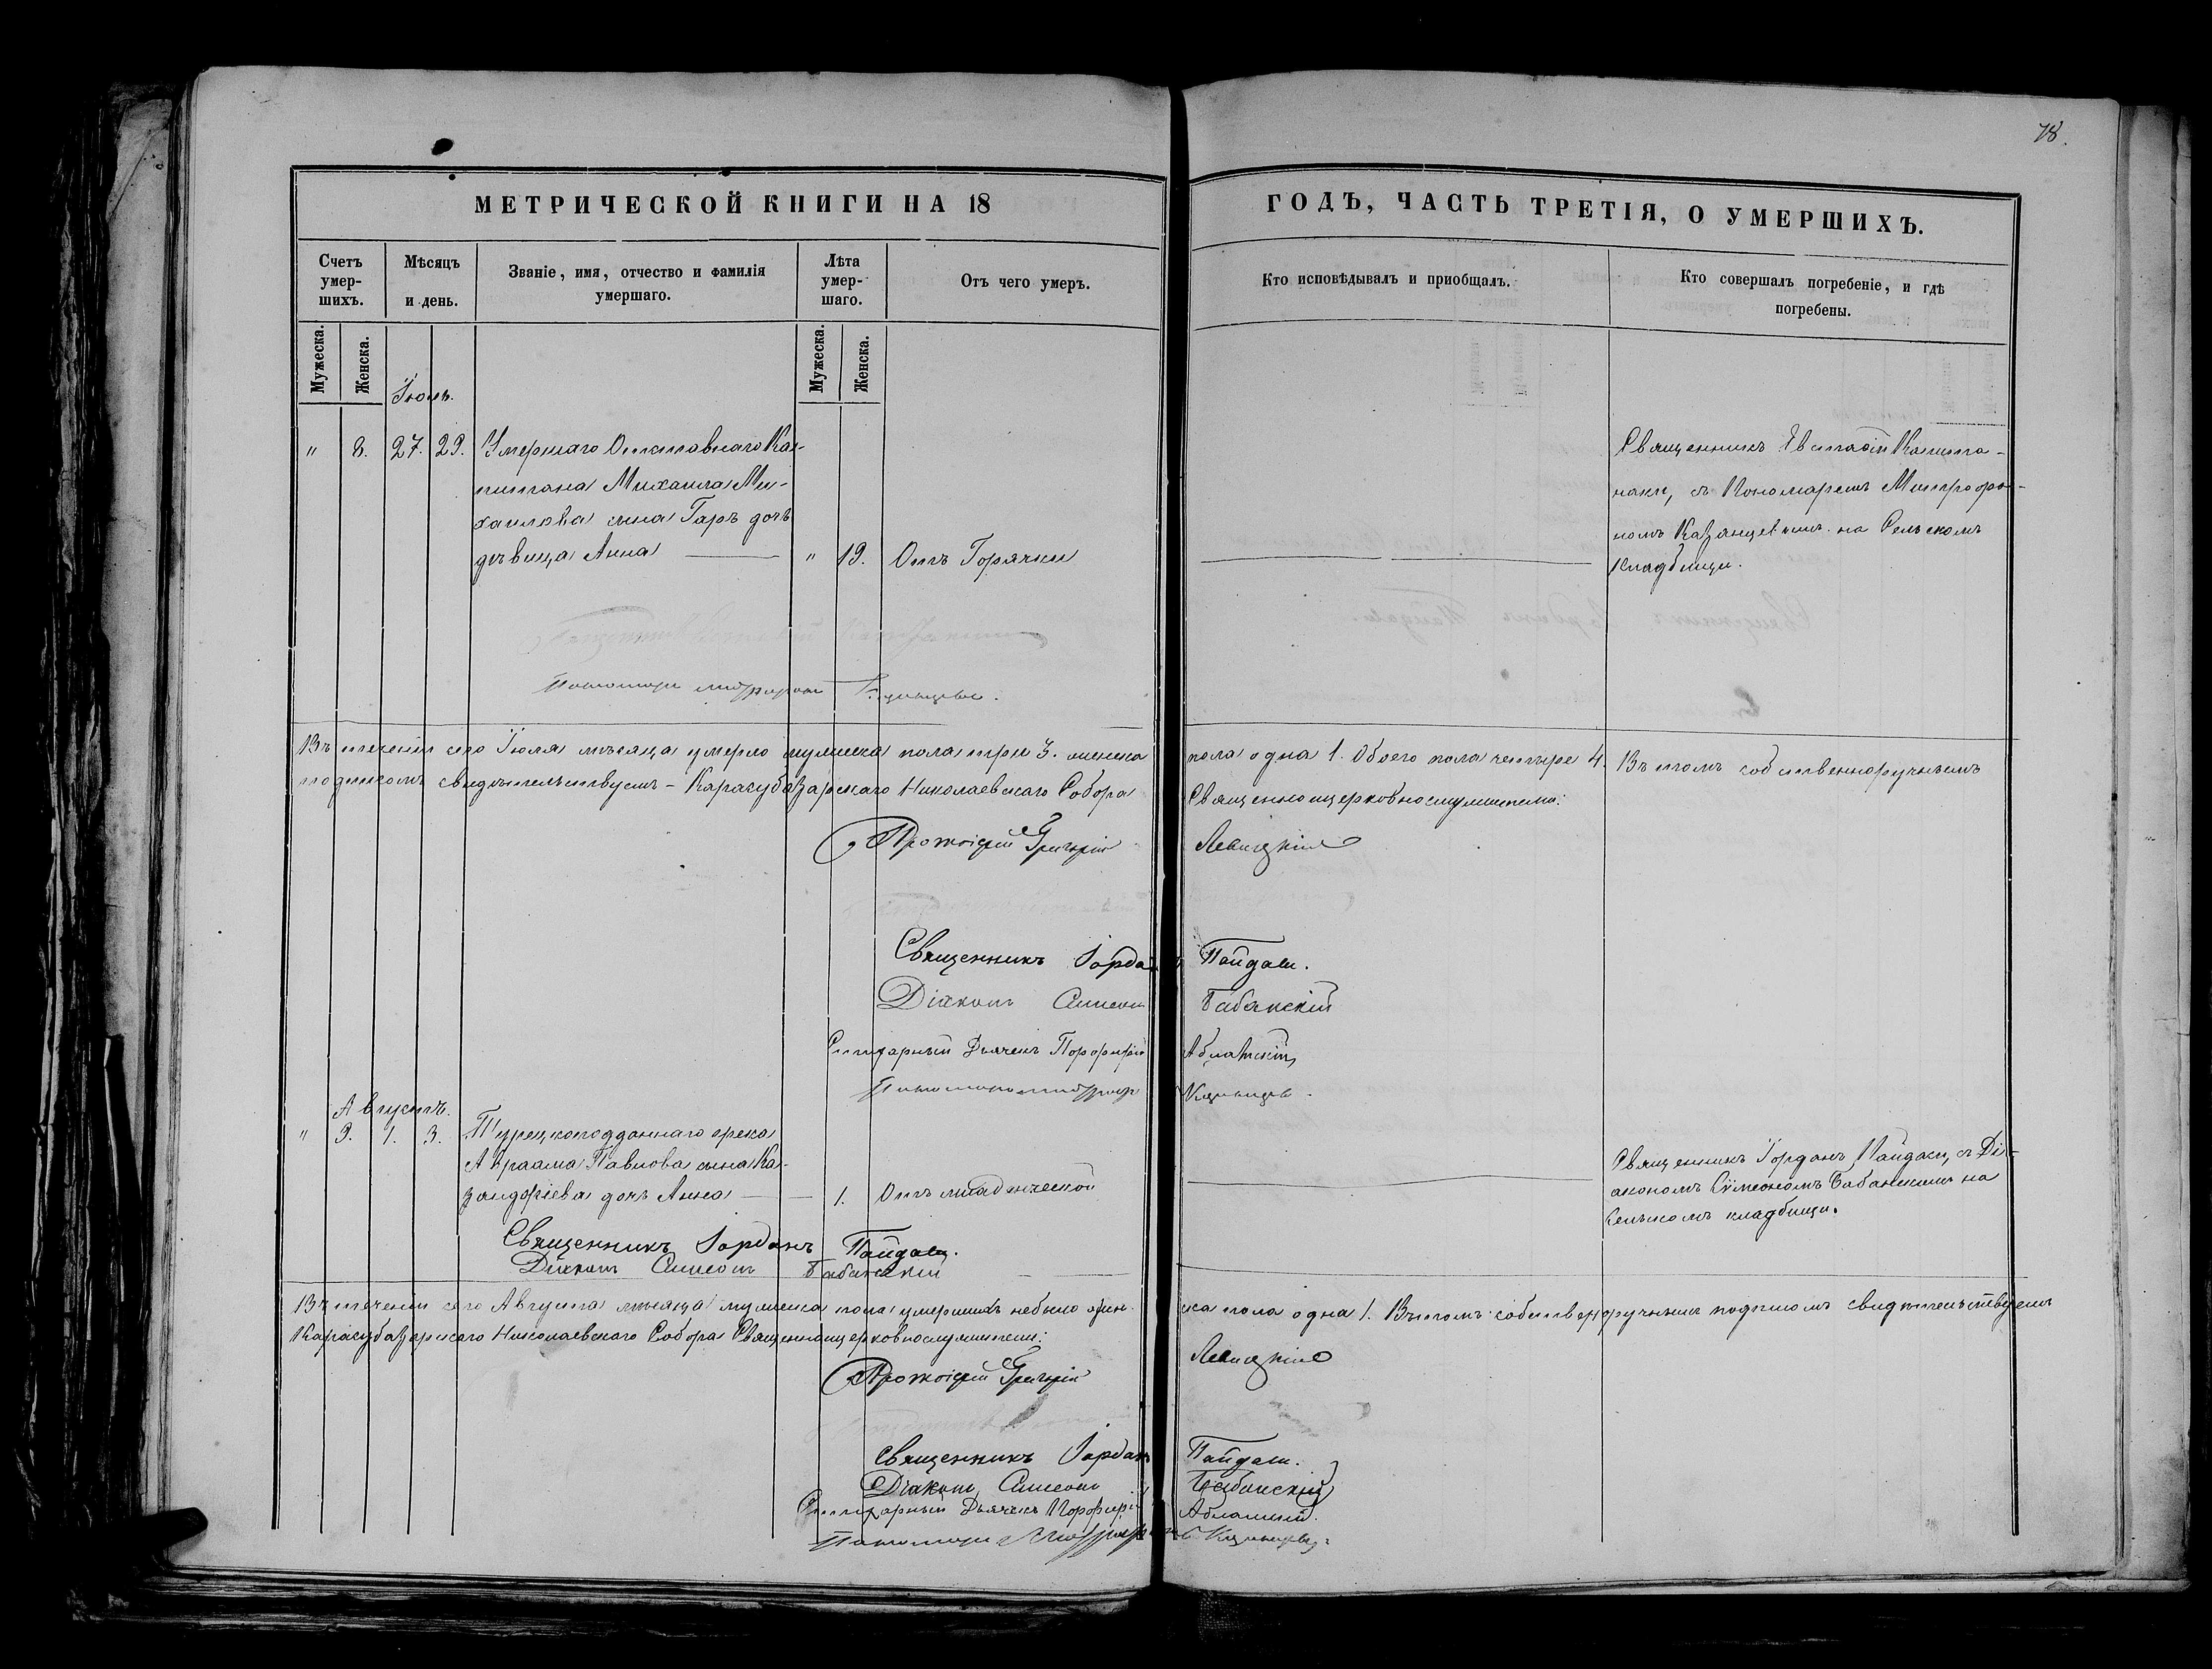 78.
МЕТРИЧЕСКОЙ КНИГИ НА 18
ГОДЪ, ЧАСТЬ ТРЕТІЯ, О УМЕРШИХЪ.
Счетъ умер-шихъ.
Мѣсяцъ и день.
Званіе, имя, отчество и фамилія умершаго.
Лѣта умер-шаго.
Отъ чего умеръ.
Кто исповѣдывалъ и пріобщалъ.
Кто совершалъ погребеніе, и гдѣ погребены.
Мужеска.
Женска.
Мужеска.
Женска.
Іюль.
" 8. 27. 29. Умершаго Отставнаго Ка-
питана Михаила Ми-
хаилова сына Гаръ дочь
дѣвица Анна — " 19. Отъ Горячки
Священникъ Евстафій Капита-
наки, съ Пономаремъ Митрофа-
номъ Казанцевымъ на Сельскомъ
Кладбищи.
Пономарь Митрофанъ Казанцевъ.
Въ теченіи сего Іюля мѣсяца умерло мужеска пола три 3. женска пола одна 1. Обоего пола четыре 4. Въ томъ собственноручнымъ
подписомъ свидѣтельствуемъ – Карасубазарскаго Николаевскаго Собора Священноцерковнослужители:
Протоіерей Григорій Левицкій
Священникъ Іорданъ Пайдаси.
Діаконъ Симеонъ Бабанскій
Стихарный Дьячекъ Порфирій
Пономарь Митрофанъ Казанцевъ.
Августъ.
" 9. 1. 3. Турецкоподданнаго грека
Авраама Павлова сына Ка-
дочь Анна — 1. Отъ младенческой
Священникъ Іорданъ Пайдаси, съ Ді-
акономъ Симеономъ Бабанскимъ на
Сельскомъ кладбищи.
Священникъ Іорданъ Пайдаси.
Діаконъ Симеонъ Бабанскій
Въ теченіи сего Августа мѣсяца мужеска пола умершихъ небыло жен-ска пола одна 1. Въ томъ собственноручнымъ подписомъ свидѣтельствуемъ
Карасубазарскаго Николаевскаго Собора Священноцерковнослужители:
Протоіерей Григорій Левицкій
Священникъ Іорданъ Пайдаси.
Діаконъ Симеонъ Бабанскій
Стихарный Дьячекъ Порфирій
Пономарь Митрофанъ Казанцевъ.